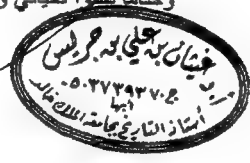 غيثان بن علي بن جريس
ج/٠٥٠٣٧٣٩٣٧٠
أبها
أستاذ التاريخ بجامعة الملك خالد